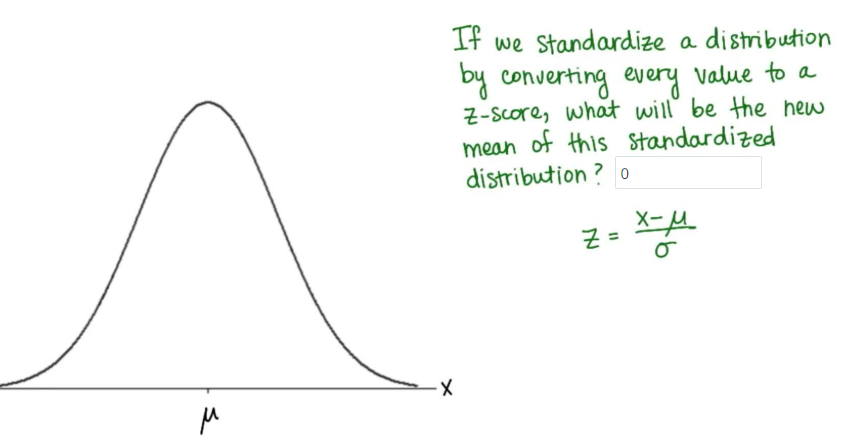 If we standardize a distribution
by converting every value to a
z-score, what will be the new
mean of this standardized
distribution? 0
z = x-μ
σ
x
μ